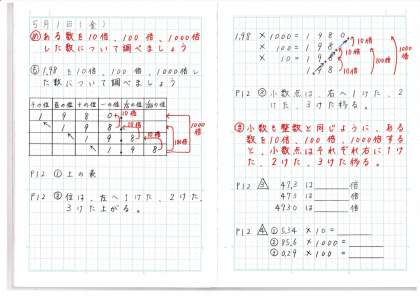 5月1日(金)
め ある数を10倍、100倍、1000倍
した数について調べましょう
1.98を10倍、100倍、1000倍し
た数について調べましょう
千の位 百の位 十の位 一の位
1 9 8 0
1 9 8
1 9 8
1 9 8
10倍
10倍
10倍
100倍
1000倍
P12 ① 上の表
P12 ② 位は、左へ1けた、2けた、
3けた上がる。
1.98 × 1000 = 1980
× 100 = 198
× 10 = 19.8
1.98
10倍
10倍
10倍
100倍
1000倍
P12 ② 小数点は、右へ1けた、2
けた、3けた移る。
ま 小数も整数と同じように、ある
数を10倍、100倍、1000倍する
と、小数点はそれぞれ右に1け
た、2けた、3けた移る。
P12 3 47.3は 倍
473は 倍
4730は 倍
P12 4 ① 5.34 × 10 =
② 85.6 × 1000 =
③ 0.29 × 100 =